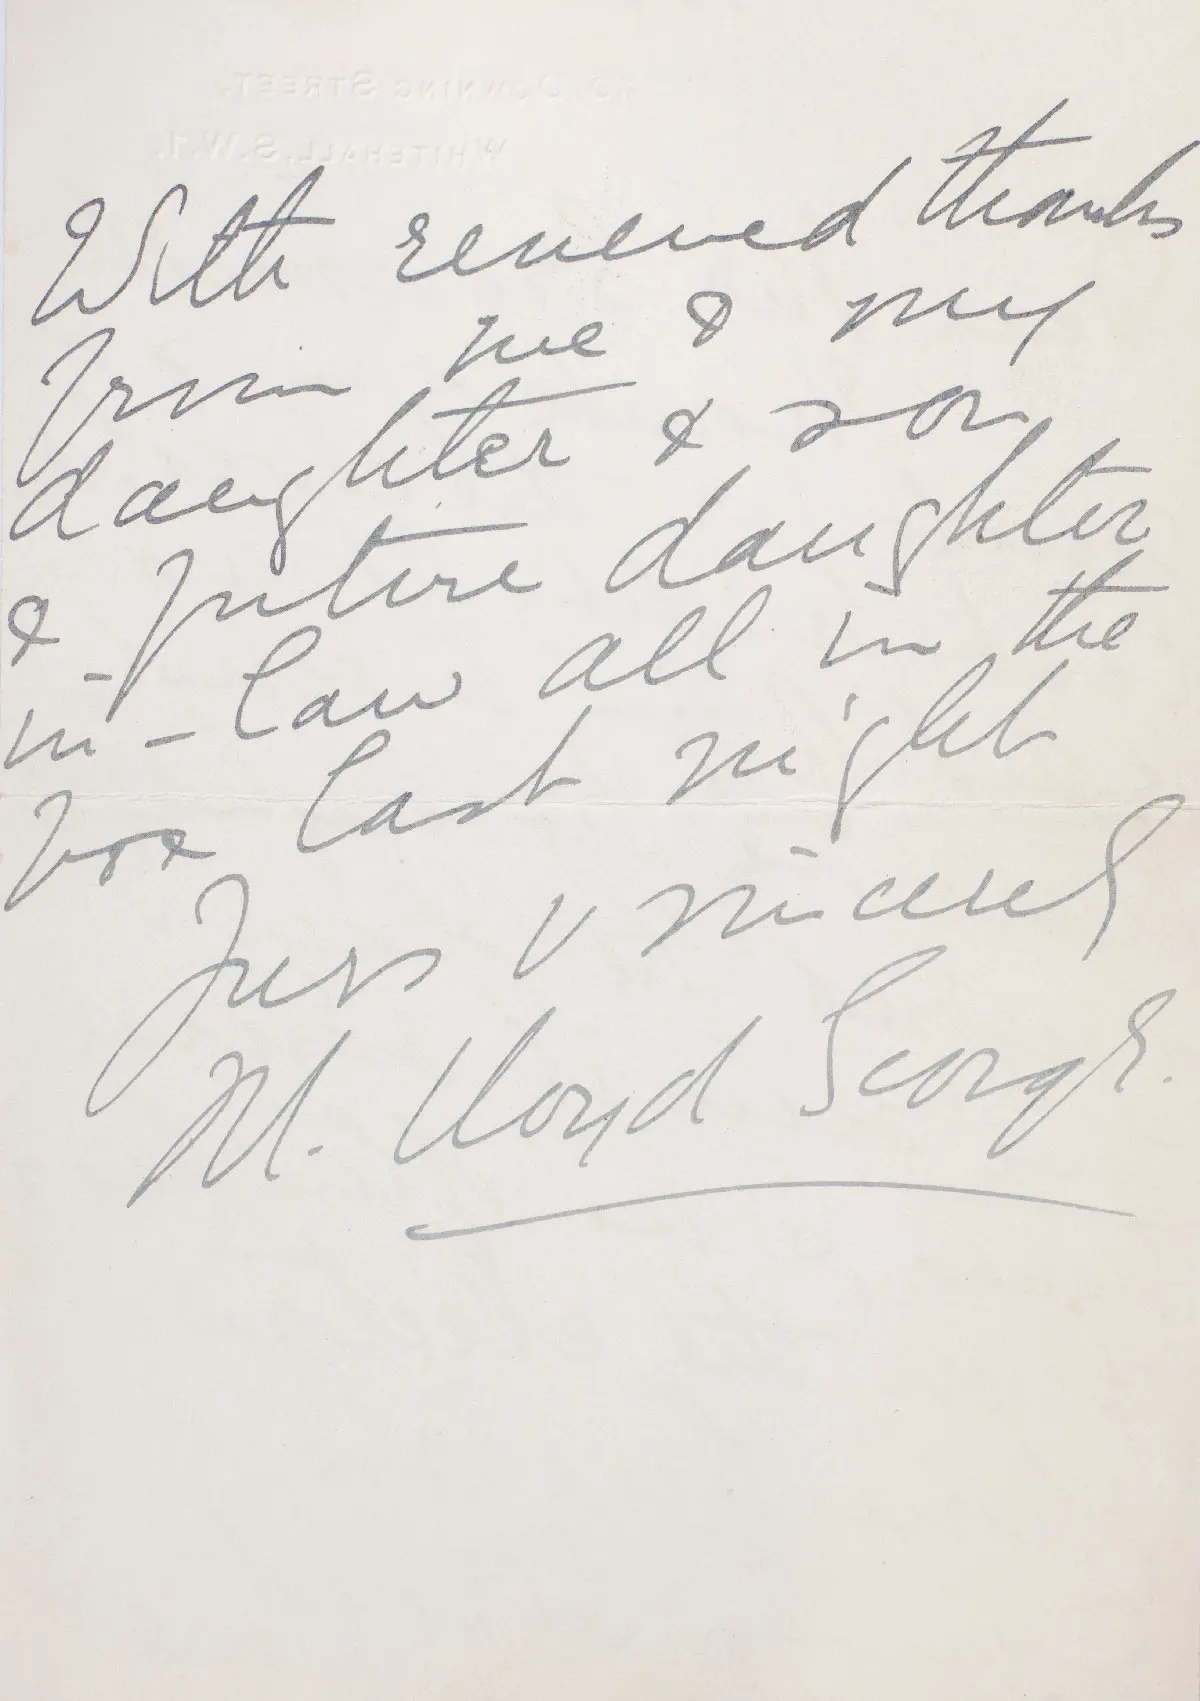 10, Downing Street,
Whitehall, S.W.1.
With renewed thanks
from me & my
daughter & son
& future daughter
in-law all in the
box last night
Yrs v sincerely
M. Lloyd George.